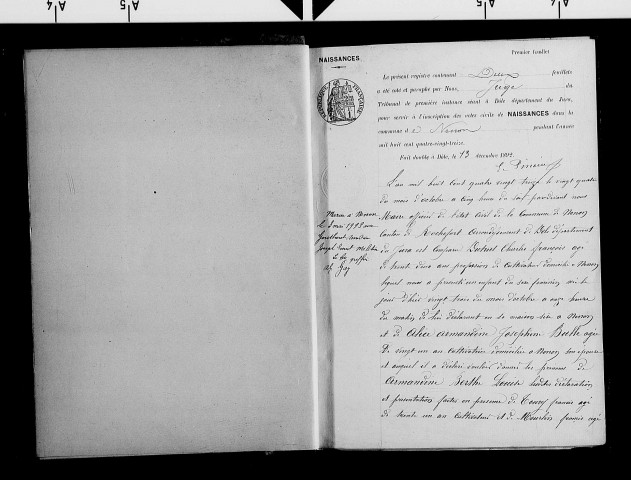 Premier feuillet
NAISSANCES.
Le présent registre contenant Deux feuillets
a été coté et paraphé par Nous, Juge du
Tribunal de première instance séant à Dole département du Jura,
pour servir à l'inscription des actes civils de NAISSANCES dans la
commune d e Nenon pendant l'année
mil huit cent quatre-vingt-treize.
Fait double à Dole, le 13 décembre 1892
L'an mil huit cent quatre vingt treize le vingt quatre
du mois d'octobre a cinq heures du soir pardevant nous
Maire officier de l'état civil de la Commune de Nenon
Canton de Rochefort arrondissement de Dole département
du Jura est comparu Charles françois agé
de trente deux ans profession de cultivateur domicilié a Nenon
lequel nous a présenté un enfant du sexe féminin né le
jour d'hier vingt trois du mois d'octobre a onze heures
du matin de lui déclarant en sa maison sise a Nenon
et de Alice armandine Joséphine agée
de vingt un an cultivatrice domiciliée a Nenon son épouse
et auquel il a déclaré vouloir donner les prénoms de
armandine Berthe Louise lesdites déclaration
et présentation faites en présence de francois agé
de trente un an cultivateur et de francois agé